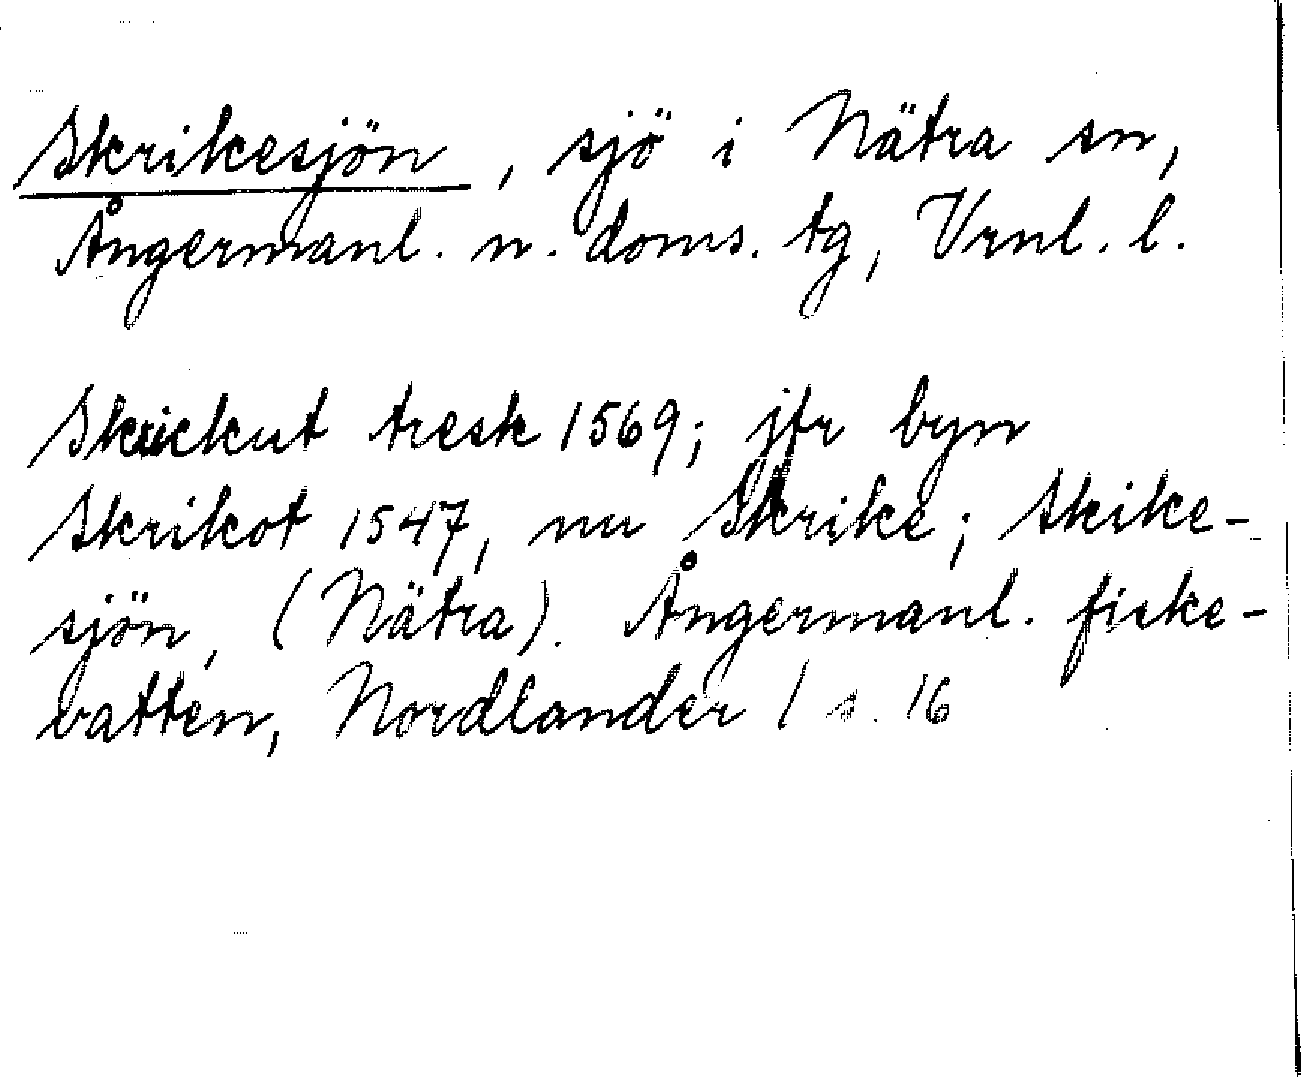 Skrikesjön, sjö i Nätra sn,
Ångermanl. n. doms. tg, Vrnl. l.
Skrickut tresk 1569; jfr byn
Skrikot 1547, nu Skrike; Skike-
sjön, (Nätra). Ångermanl. fiske-
vatten, Nordlander / s. 16